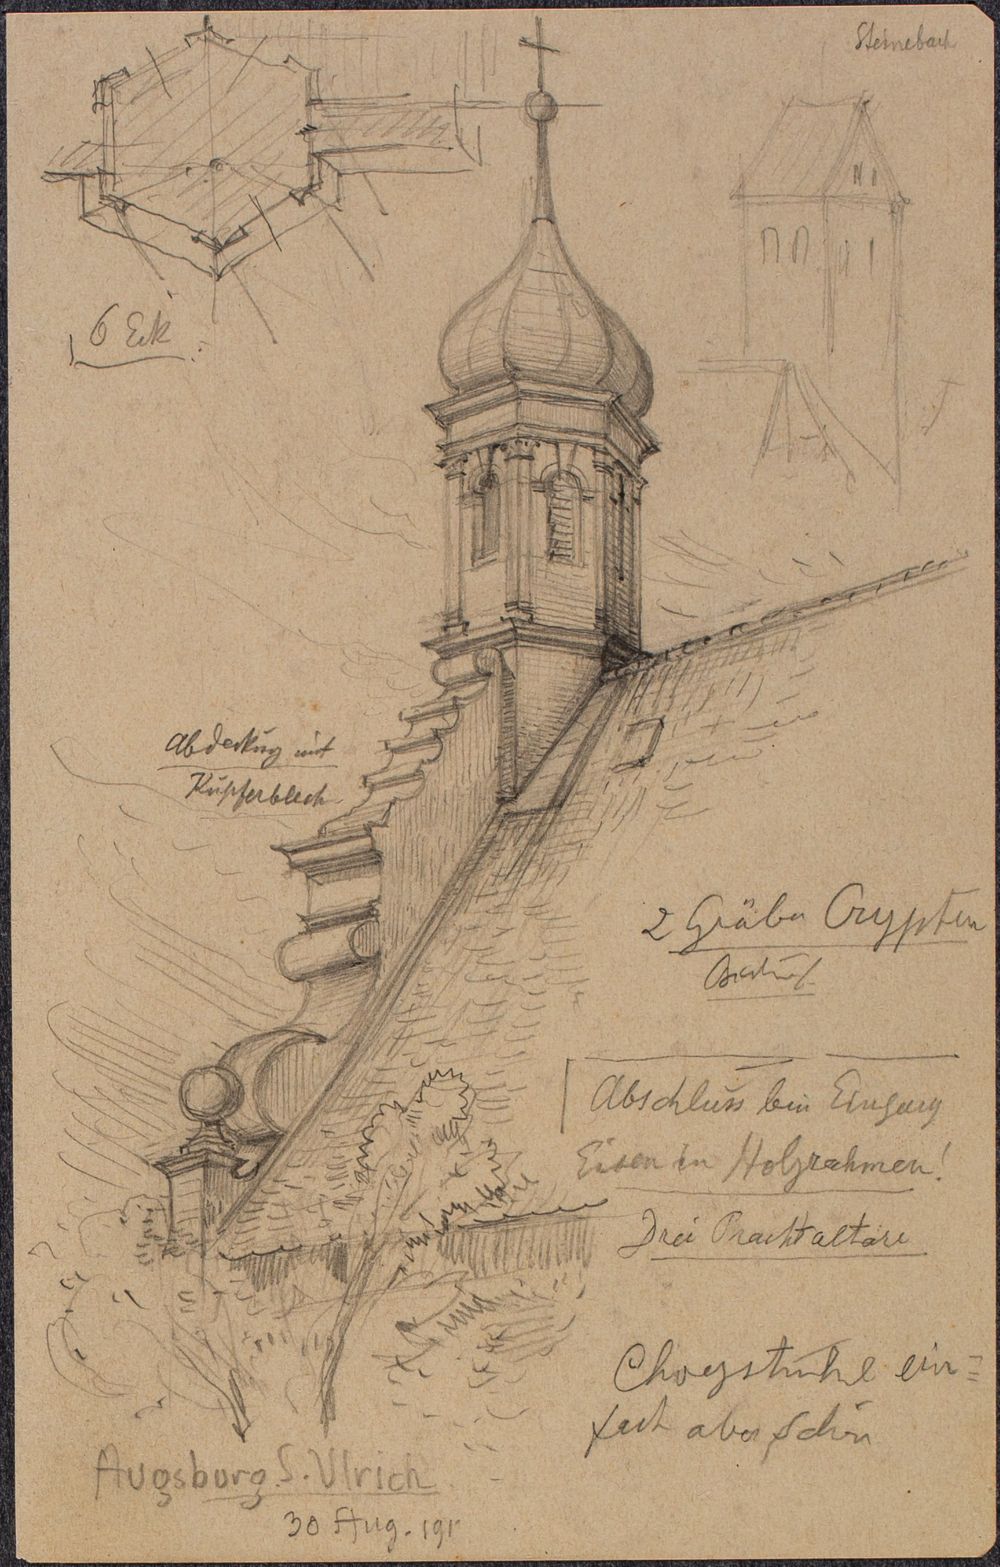 Steinebach
6 Eck
Abdeckung mit
Kupferblech
2 Gräber Crypten
Abschluss beim Eingang
Eisen in Holzrahmen!
Drei Prachtaltäre
Chorstühle ein=
fach aber schön
Augsburg. S. Ulrich
30 Aug. 191